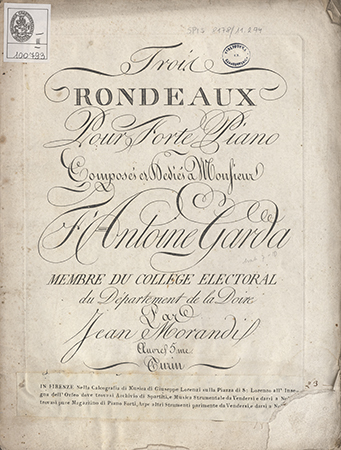 III
100793
SPIS 2178/11.294
Trois
RONDEAUX
Pour Forte Piano
Composés et Dediés à Monsieur
de
F. Antoine Garda
MEMBRE DU COLLÈGE ELECTORAL
du Département de la Doire
Par
Jean Morandi
Œuvre 5.me
Turin
N.º 3
IN FIRENZE Nella Calcografia di Musica di Giuseppe Lorenzi sulla Piazza di S. Lorenzo all' Inse-
gna dell' Orfeo dove trovasi Archivio di Spartiti, e Musica Strumentale da Vendersi e darsi a
trovasi pure Magazzino di Piano Forti, Arpe altri Strumenti parimente da Vendersi, e darsi a